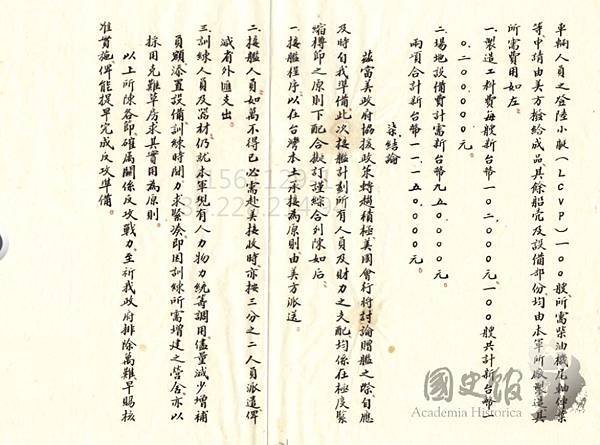 車輛人員之登陸小艇(LCVP)一○○艘所需柴油機尾軸俥葉
等申請由美方撥給成品其餘船壳及設備部份均由本軍所廠製造其
所需費用如左
一、製造工料費每艘新台幣一○二○○○元一○○艘共計新台幣一
○.二○○○○○元
二、場地設備費計需新台幣九五○○○○元
兩項合計新台幣一一.一五○○○○元
柒、結論
茲當美政府協援政策轉趨積極美國會行將討論贈艦之際自應
及時自我準備此次接艦計劃所有人員及財力之支配均係在極度緊
縮樽節之原則下配合擬訂謹綜合列陳如后
一、接艦程序以在台灣本土承接為原則由美方派送
二、接艦人員如萬不得已必需赴美接收時亦按三分之二人員派遣俾
減省外匯支出
三、訓練人員及器材仍就本軍現有人力物力統籌調用儘量減少增補
員額添置設備訓練時間力求緊湊即因訓練所需增建之營舍亦以
採用克難草房求其實用為原則
以上所陳各節確屬關係反攻戰力至祈我政府排除萬難早賜核
准實施俾能提早完成反攻準備
國史館
Academia Historica